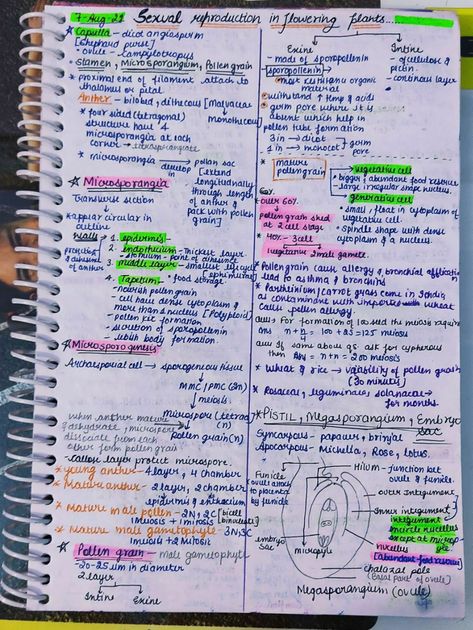 7-Aug-21 Sexual reproduction in flowering plants....
☆ Capsella - dicot angiosperm
[shephard purse]
• ovule - campylotropus
Stamen, Microsporangium, Pollen grain
* proximal end of filament attach to
thalamus or petal
Anther - bilobed, dithecous [Malvaceae
monothecous]
* four sided (tetragonal)
structure haul 4
microsporangia at each
corner → tetrasporangiate
* microsporangia develop in → pollen sac
[extend
longitudinally
through length
of anther &
pack with pollen
grain]
☆ Microsporangia
Transverse section
* appear circular in
outline
Walls
protected
& dehiscence
of anther
1. epidermis
2. Endothecium - thickest layer
- stomium - point of dehiscence
3. middle layer - smallest lifecycle
ephimural
4. Tapetum - food storage
- nourish pollen grain
- cell have dense cytoplasm &
more than 1 nucleus [Polyploid]
- pollen kit formation
- secretion of sporopollenin
- ubish body formation.
☆ Microsporogenesis
Archesporial cell → sporogenous tissue
↓
MMC / PMC (2n)
↓ meiosis
Microspore (tetrad)
(n)
↓
Pollen grain (n)
when anther mature
& dehydrate, microspore
dissociate from each
other form pollen grain
- Callose layer protect microspore.
* young anther - 4 layer, 4 chamber
* Mature anther - 2 layer, 2 chamber
epidermis & endothecium
* Mature male pollen - 2N; 2C [bicell
binucleate]
1 meiosis + 1 mitosis
* Mature male gametophyte - 3N, 3C
1 meio + 2 mitosis
☆ Pollen grain - male gametophyte
- 20-25 um in diameter
2 layer
Intine Exine
Exine
- made of sporopollenin
sporopollenin
• most resistant organic
material
• withstand ↑ temp & acids
• germ pore where it is
absent which help in
pollen tube formation
3 in → dicot
1 in → monocot
germ
pore
Intine
- of cellulose &
pectin
- continous layer
* mature
pollen grain
vegetative cell
• bigger & abundant food reserve
- large irregular shape nucleus.
generative cell
- small & float in cytoplasm of
vegetative cell.
• spindle shape with dense
cytoplasm & a nucleus.
60%
* over 60%
pollen grain shed
at 2 cell stage
* 40% - 3 cell
1 vegetative 2 male gamete.
* Pollen grain cause allergy & bronchial affliction
lead to asthma & bronquins
* Parthenium / carrot grass come in India
as contaminant with imported wheat
cause pollen allergy.
Ques - For formation of 100 seed the miosis require
Ans n + n/4 = 100 + 25 = 125 meiosis
Que If same above qs. ask for cypherous
then Ans = n + n = 200 meiosis
* Wheat & rice → viability of pollen grain
(30 minutes)
* Rosaceae, leguminales, solanaceae →
for months.
* Pistil, Megasporangium, Embryo
sac
Syncarpous - papaver, brinjal
Apocarpous - Michelia, Rose, lotus.
Funicle
(ovule attach
to placenta
by funicle)
Hilum - junction bet
ovule & funicle.
outer integument
inner integument
integument
encircle nucellus
except at micropyle
nucellus
[abundant food reserve]
embryo
sac
micropyle
chalazal pole
(Basal part of ovule)
Megasporangium (ovule)